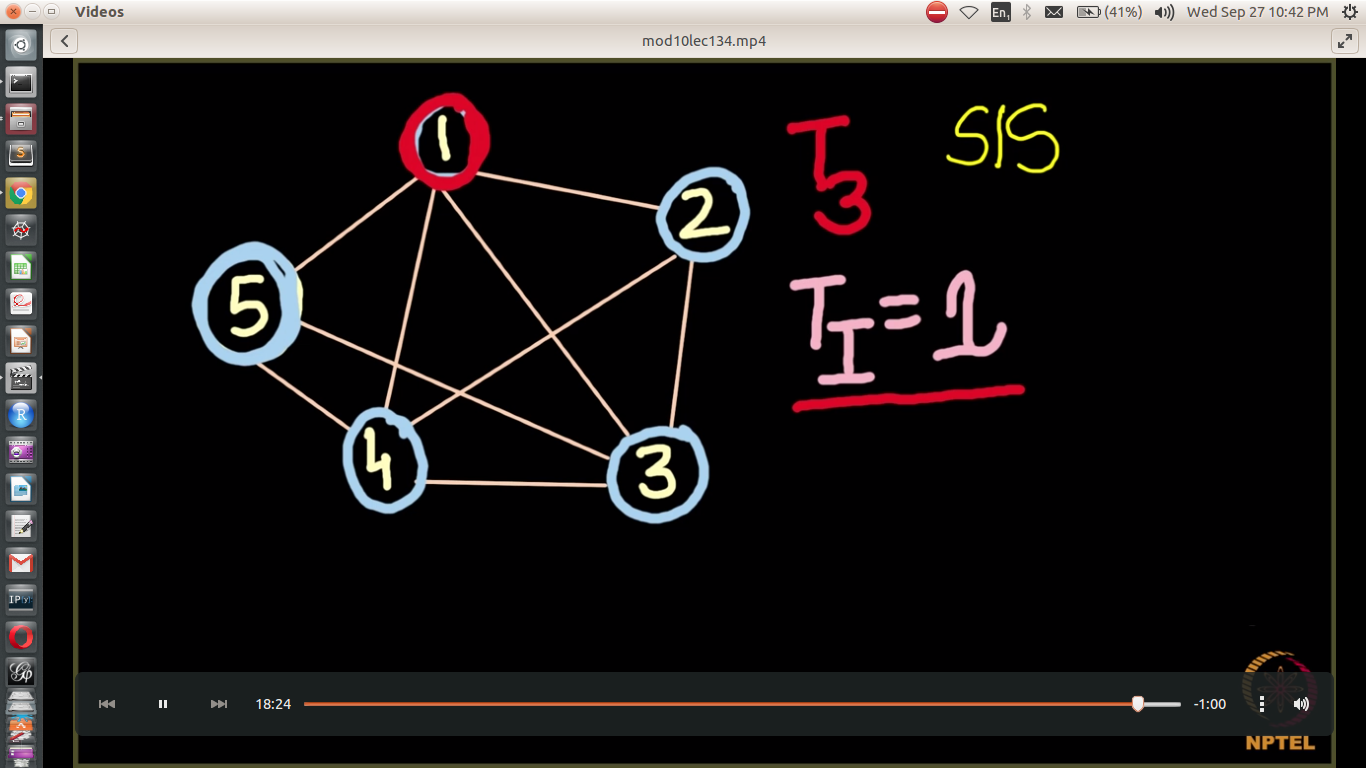 Videos
En1
(41%)
Wed Sep 27 10:42 PM
mod10lec134.mp4
1
2
3
4
5
T3
SIS
TI=1
18:24
-1:00
NPTEL